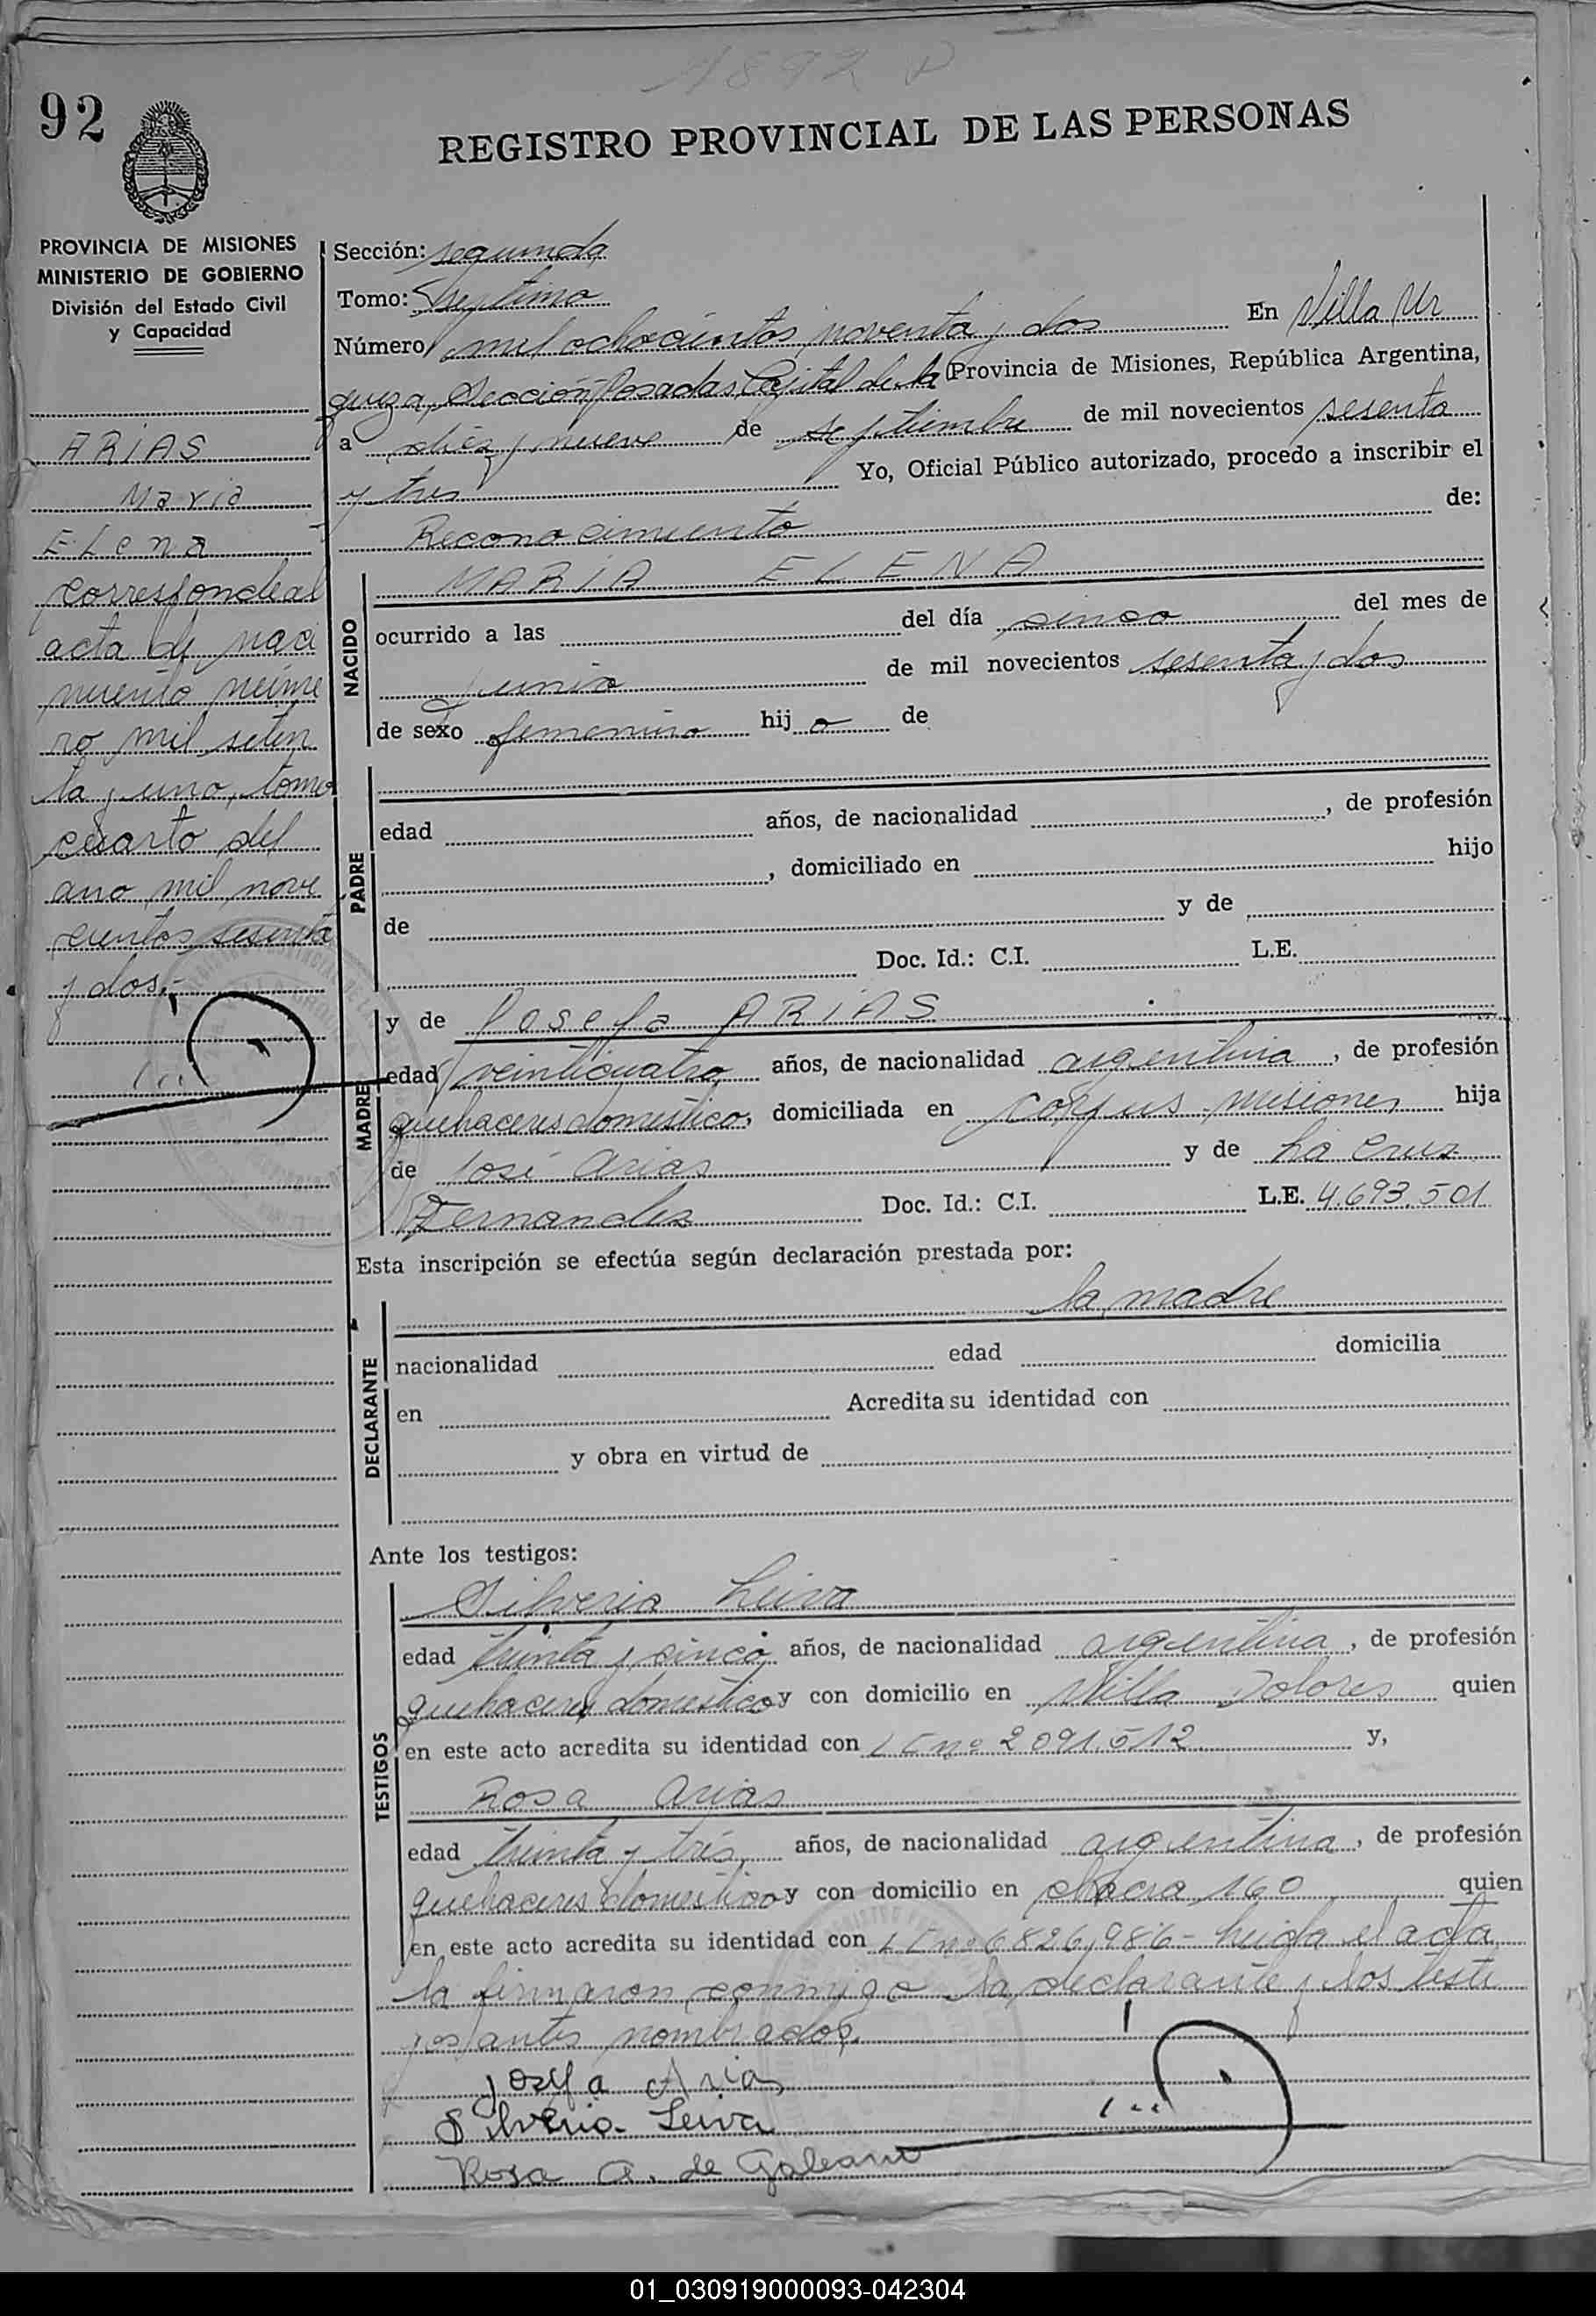 1892 P
92
REGISTRO PROVINCIAL DE LAS PERSONAS
PROVINCIA DE MISIONES
MINISTERIO DE GOBIERNO
División del Estado Civil
y Capacidad
ARIAS
Maria
ELena
corresponde al
acta de naci
miento núme
ro mil seten
ta y uno, tomo
cuarto del
ano mil nove
cientos sesenta
y dos.-
Sección: segunda
Tomo: Septimo
Número mil ochocientos noventa y dos En Villa Ur
quiza, Sección Posadas Capital de la Provincia de Misiones, República Argentina,
a diez y nueve de septiembre de mil novecientos sesenta
y tres Yo, Oficial Público autorizado, procedo a inscribir el
Reconocimiento de:
NACIDO
MARIA ELENA
ocurrido a las del día cinco del mes de
junio de mil novecientos sesenta y dos
de sexo femenino hij a de
PADRE
edad años, de nacionalidad , de profesión
, domiciliado en hijo
de y de
Doc. Id.: C.I. L.E.
MADRE
y de Josefa ARIAS
edad veinticuatro años, de nacionalidad argentina, de profesión
quehaceres domestico, domiciliada en Corpus Misiones hija
de José Arias y de La Cruz
Fernandez Doc. Id.: C.I. L.E. 4.693.501
Esta inscripción se efectúa según declaración prestada por:
DECLARANTE
la madre
nacionalidad edad domicilia
en Acredita su identidad con
y obra en virtud de
Ante los testigos:
TESTIGOS
Silveria Leiva
edad treinta y cinco años, de nacionalidad argentina, de profesión
quehaceres domestico y con domicilio en Villa Dolores quien
en este acto acredita su identidad con LC nº 2091.512 y,
Rosa Arias
edad treinta y trés años, de nacionalidad argentina, de profesión
quehaceres domestico y con domicilio en chacra 160 quien
en este acto acredita su identidad con LC nº 6826,986- Leida el acta
la firmaron conmigo la declarante y los testi
gos antes nombrados.
Josefa Arias
Silveria Leiva
Rosa A. de Galeano
01_030919000093-042304